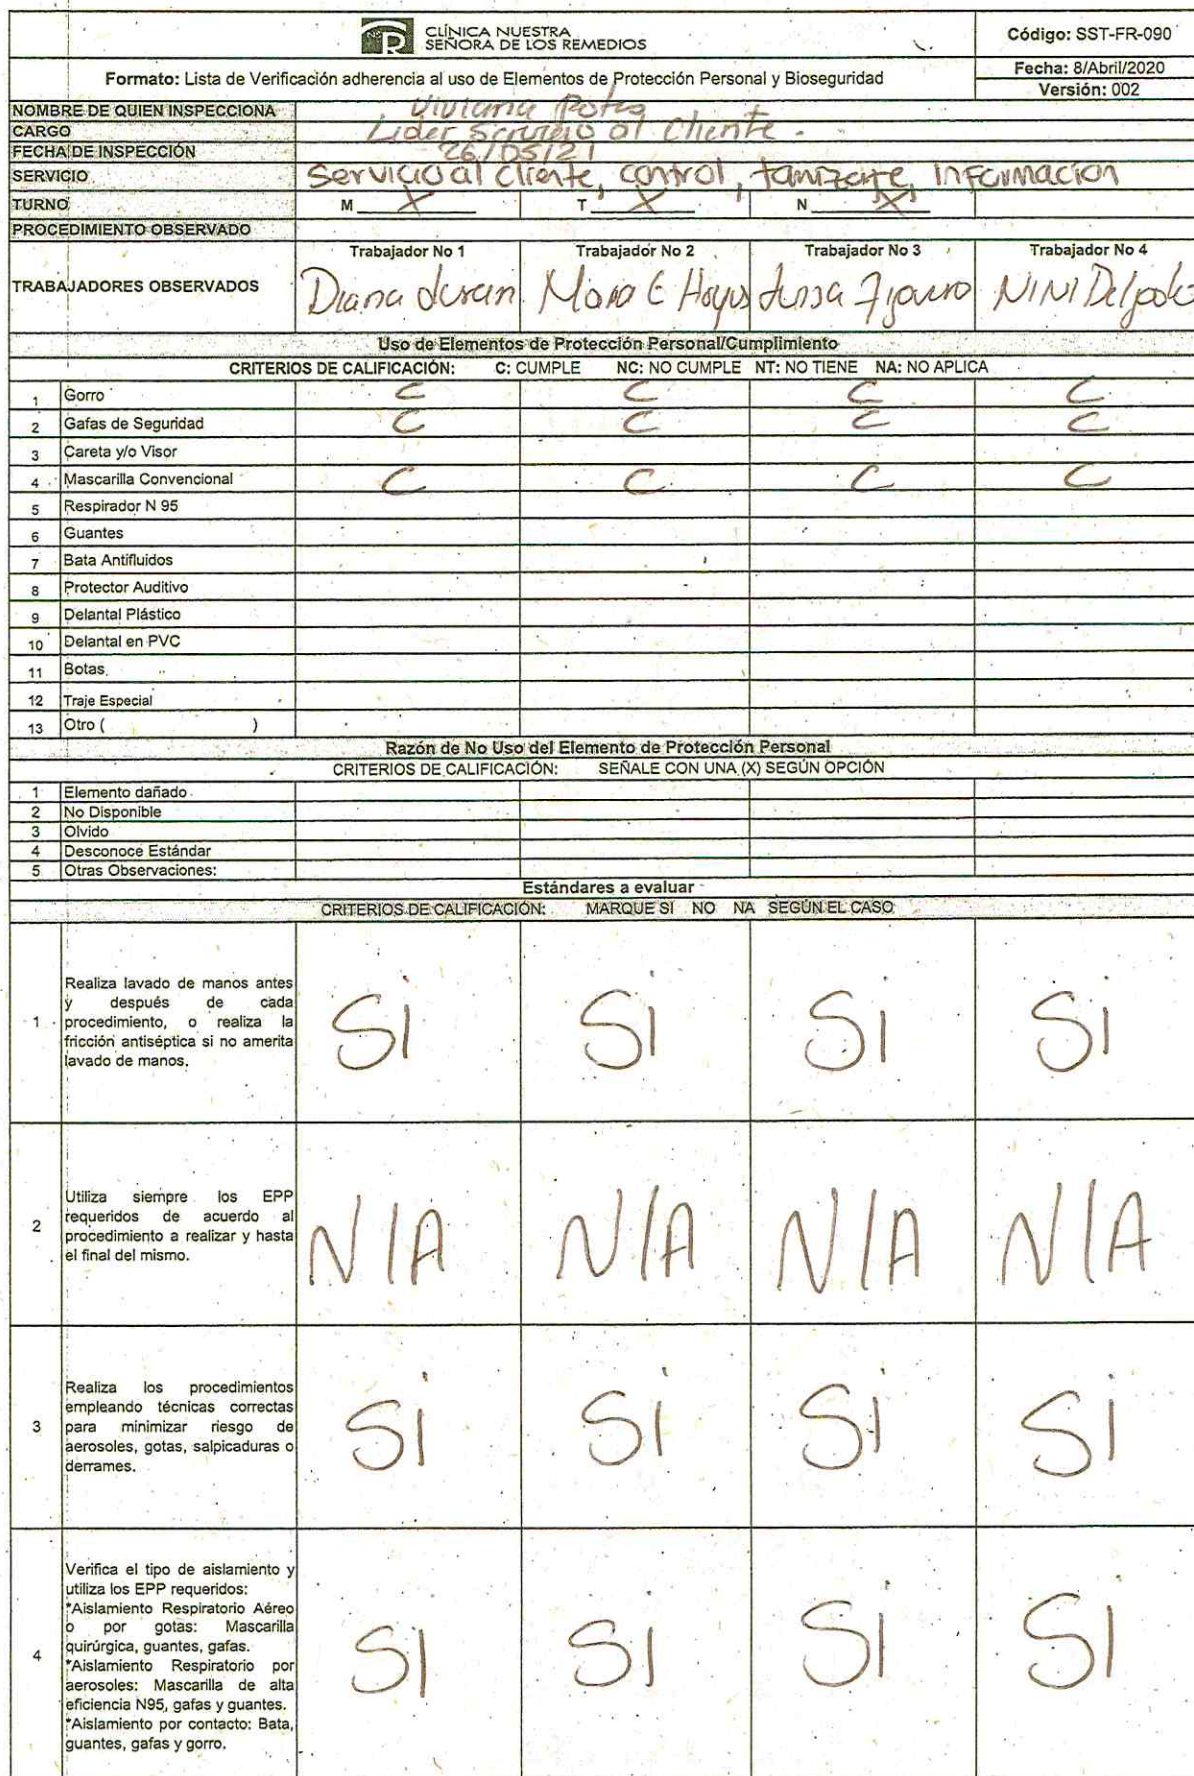 CLÍNICA NUESTRA
SEÑORA DE LOS REMEDIOS
Código: SST-FR-090
Formato: Lista de Verificación adherencia al uso de Elementos de Protección Personal y Bioseguridad
Fecha: 8/Abril/2020
Versión: 002
NOMBRE DE QUIEN INSPECCIONA Viviana
CARGO Lider Servicio al Cliente.
FECHA DE INSPECCIÓN 26/05/21
SERVICIO Servicio al cliente, control, tamizaje, Informacion
TURNO M X T X N X
PROCEDIMIENTO OBSERVADO
Trabajador No 1 Trabajador No 2 Trabajador No 3 Trabajador No 4
TRABAJADORES OBSERVADOS Diana duran Maria E Hoyos NINI Delgado
Uso de Elementos de Protección Personal/Cumplimiento
CRITERIOS DE CALIFICACIÓN: C: CUMPLE NC: NO CUMPLE NT: NO TIENE NA: NO APLICA
1 Gorro C C C C
2 Gafas de Seguridad C C C C
3 Careta y/o Visor
4 Mascarilla Convencional C C C C
5 Respirador N 95
6 Guantes
7 Bata Antifluidos
8 Protector Auditivo
9 Delantal Plástico
10 Delantal en PVC
11 Botas
12 Traje Especial
13 Otro ( )
Razón de No Uso del Elemento de Protección Personal
CRITERIOS DE CALIFICACIÓN: SEÑALE CON UNA (X) SEGÚN OPCIÓN
1 Elemento dañado
2 No Disponible
3 Olvido
4 Desconoce Estándar
5 Otras Observaciones:
Estándares a evaluar
CRITERIOS DE CALIFICACIÓN: MARQUE SI NO NA SEGÚN EL CASO
Realiza lavado de manos antes
y después de cada
1 procedimiento, o realiza la
fricción antiséptica si no amerita
lavado de manos.
Si Si Si Si
Utiliza siempre los EPP
2 requeridos de acuerdo al
procedimiento a realizar y hasta
el final del mismo.
N/A N/A N/A N/A
Realiza los procedimientos
empleando técnicas correctas
3 para minimizar riesgo de
aerosoles, gotas, salpicaduras o
derrames.
Si Si Si Si
Verifica el tipo de aislamiento y
utiliza los EPP requeridos:
*Aislamiento Respiratorio Aéreo
o por gotas: Mascarilla
4 quirúrgica, guantes, gafas.
*Aislamiento Respiratorio por
aerosoles: Mascarilla de alta
eficiencia N95, gafas y guantes.
*Aislamiento por contacto: Bata,
guantes, gafas y gorro.
Si Si Si Si